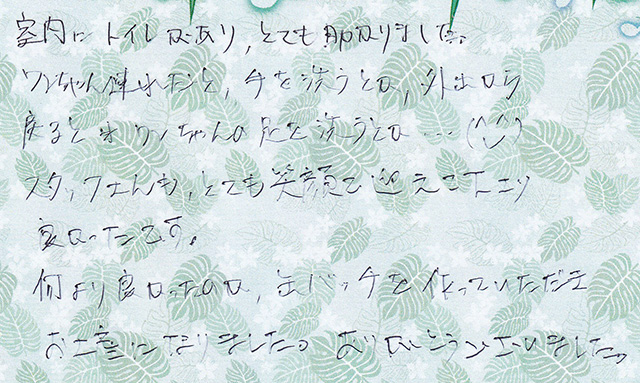 室内にトイレがあり、とても助かりました。
ワンちゃん連れだと、手を洗うとか、外出から
戻るときワンちゃんの足を洗うとか…(^^)
スタッフさんも、とても笑顔で迎えて下さり
良かったです。
何より良かったのは、缶バッチを作っていただき
お土産になりました。ありがとうございました。